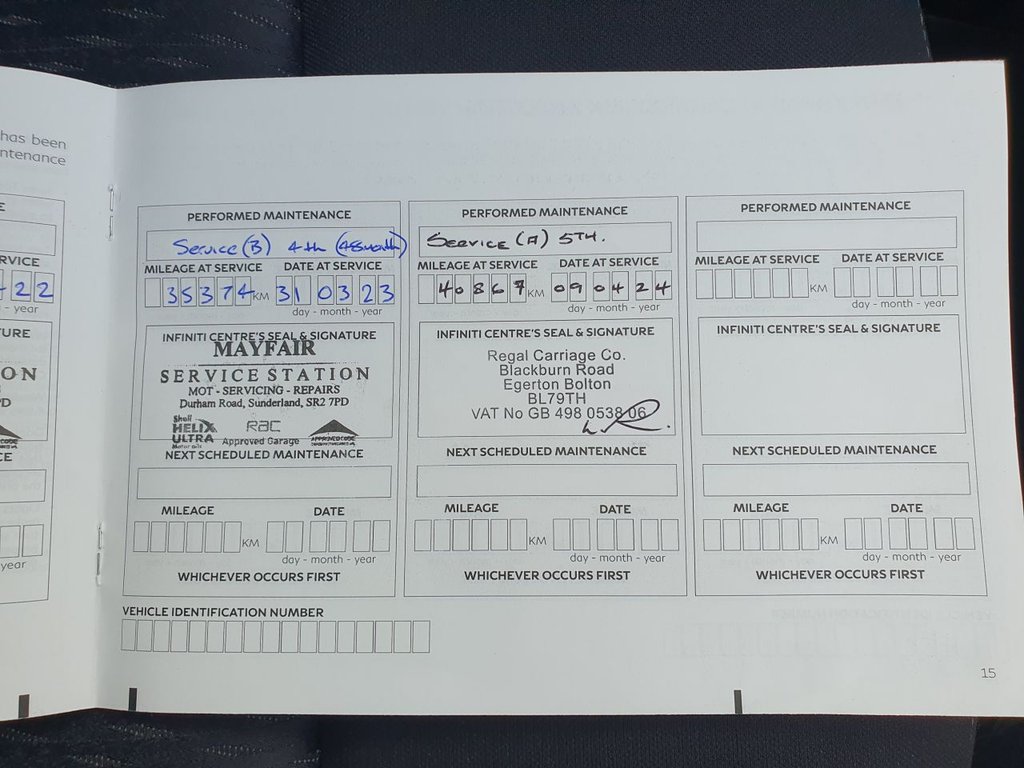 has been
ntenance
E
RVICE
22
year
TURE
ON
PD
CE
year
PERFORMED MAINTENANCE
Service (B) 4th (48month)
MILEAGE AT SERVICE DATE AT SERVICE
35374 KM 310323
day - month - year
INFINITI CENTRE'S SEAL & SIGNATURE
MAYFAIR
SERVICE STATION
MOT - SERVICING - REPAIRS
Durham Road, Sunderland, SR2 7PD
Shell
HELIX
ULTRA
Motor oils
RAC
Approved Garage
APPROVED CODE
NEXT SCHEDULED MAINTENANCE
MILEAGE DATE
KM
day - month - year
WHICHEVER OCCURS FIRST
PERFORMED MAINTENANCE
Service (A) 5TH.
MILEAGE AT SERVICE DATE AT SERVICE
40867 KM 090424
day - month - year
INFINITI CENTRE'S SEAL & SIGNATURE
Regal Carriage Co.
Blackburn Road
Egerton Bolton
BL79TH
VAT No GB 498 0538 06
NEXT SCHEDULED MAINTENANCE
MILEAGE DATE
KM
day - month - year
WHICHEVER OCCURS FIRST
PERFORMED MAINTENANCE
MILEAGE AT SERVICE DATE AT SERVICE
KM
day - month - year
INFINITI CENTRE'S SEAL & SIGNATURE
NEXT SCHEDULED MAINTENANCE
MILEAGE DATE
KM
day - month - year
WHICHEVER OCCURS FIRST
VEHICLE IDENTIFICATION NUMBER
15